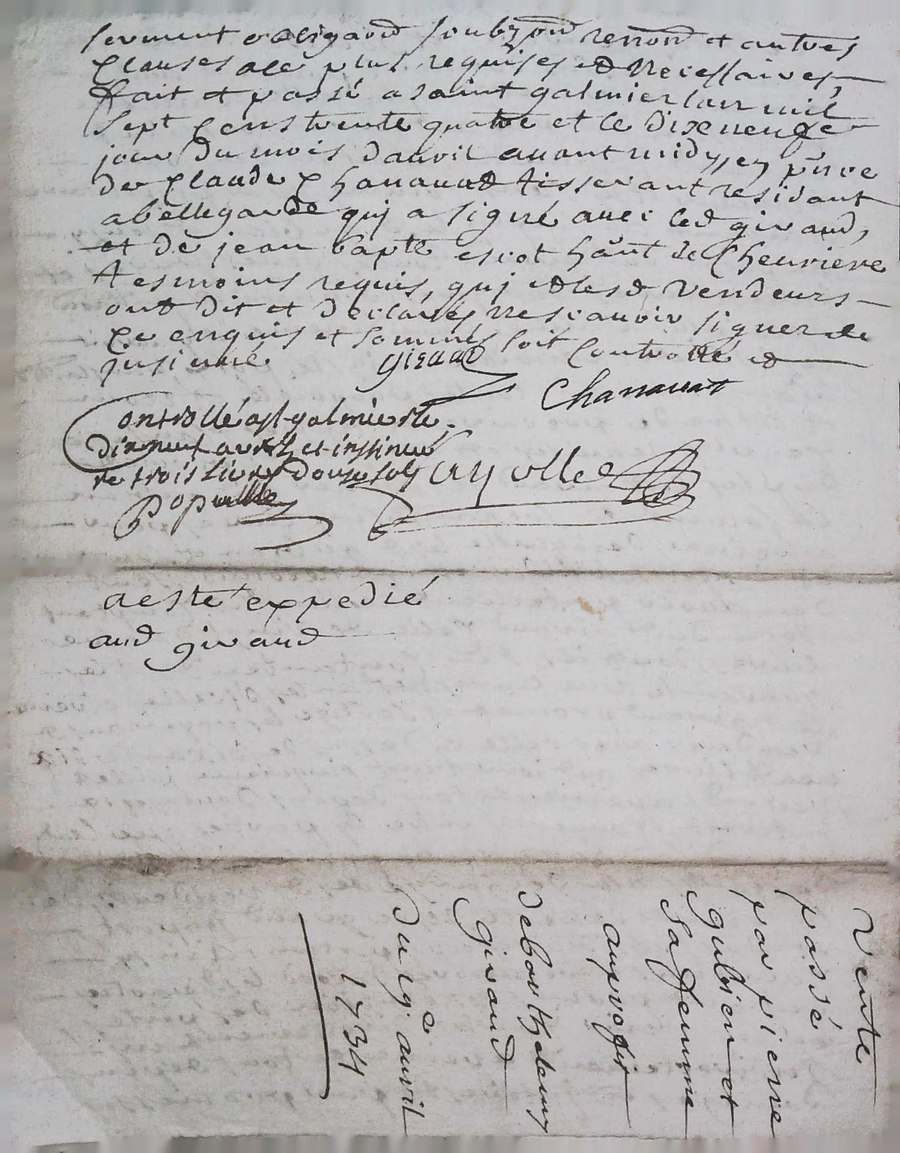 serment obligaon soubzon renon et autres
Clauses ale plus requises et Necessaires,
fait et passé a saint galmier lan mil
Sept Cens trente quatre et le dixneufe
jour du mois dauril auant midy, en pnce
de Claude Chauanad tisserant residant
a bellegarde quj a signé auec led giraud,
et de jean bapte escot hant de Cheuriere
tesmoins requis, quj et lesd Vendeurs
ont dit et declarés ne scauoir signer de
Ce enquis et sommés soit Controllé et
jnsinué
giraud
Chauanat
Controllé a st galmier le
dixneuf auril et insinué
re trois liures douze sols
ayolle
aesté expedié
aud giraud
Vente
passé
par pierre
gubien et
Sa femme
au profit
de barthelemy
giraud
Du 19e auril
1734